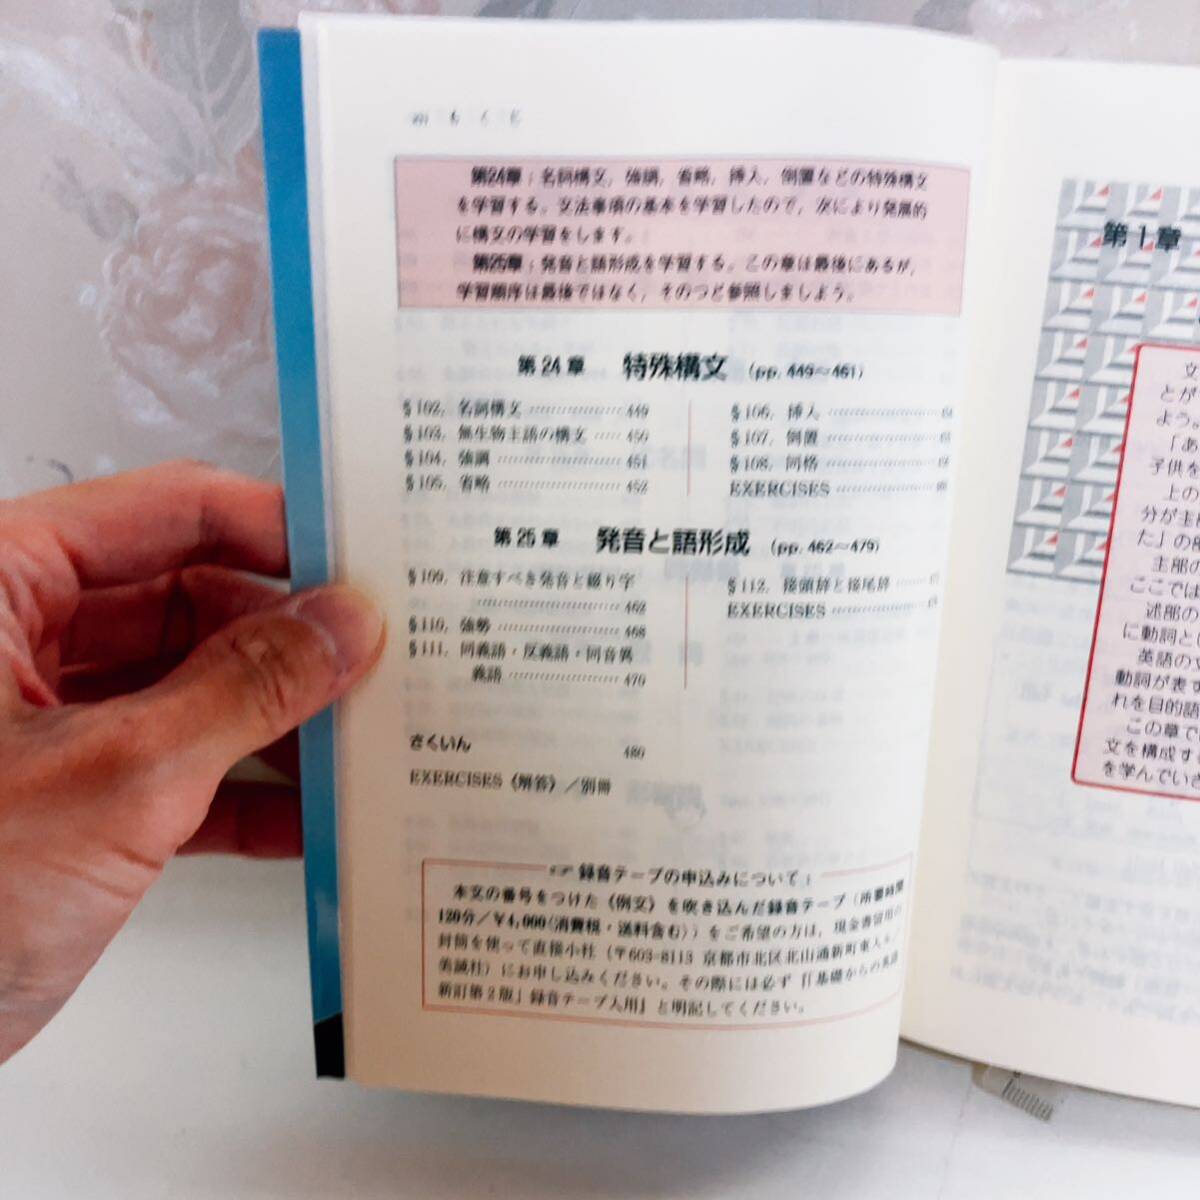 も く じ
第24章：名詞構文，強調，省略，挿入，倒置などの特殊構文
を学習する。文法事項の基本を学習したので，次により発展的
に構文の学習をします。
第25章：発音と語形成を学習する。この章は最後にあるが，
学習順序は最後ではなく，そのつど参照しましょう。
第 24 章 特殊構文 (pp. 449～461)
§102. 名詞構文 449
§103. 無生物主語の構文 450
§104. 強調 451
§105. 省略 452
§106. 挿入
§107. 倒置
§108. 同格
EXERCISES
第 25 章 発音と語形成 (pp. 462～479)
§109. 注意すべき発音と綴り字
462
§110. 強勢 468
§111. 同義語・反義語・同音異
義語 470
§112. 接頭辞と接尾辞
EXERCISES
さくいん 480
EXERCISES《解答》／別冊
☞ 録音テープの申込みについて
本文の番号をつけた《例文》を吹き込んだ録音テープ（所要時間
120分／￥4,000(消費税・送料含む)）をご希望の方は，現金書留用の
封筒を使って直接小社（〒603-8113 京都市北区北山通新町東入ル／
美誠社）にお申し込みください。その際には必ず『「基礎からの英語
新訂第2版」録音テープ入用』と明記してください。
第1章
文
とが
よう。
「あ
子供を
上の
分が主
た」の
主部の
ここでは
述部の
に動詞と
英語の文
動詞が表す
れを目的語
この章で
文を構成す
を学んでい